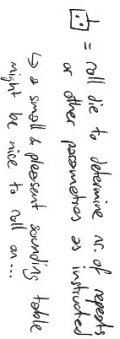 = roll die to determine nr. of repeats
or other parameters as instructed
↳ a small & pleasent sounding table
might be nice to roll on...